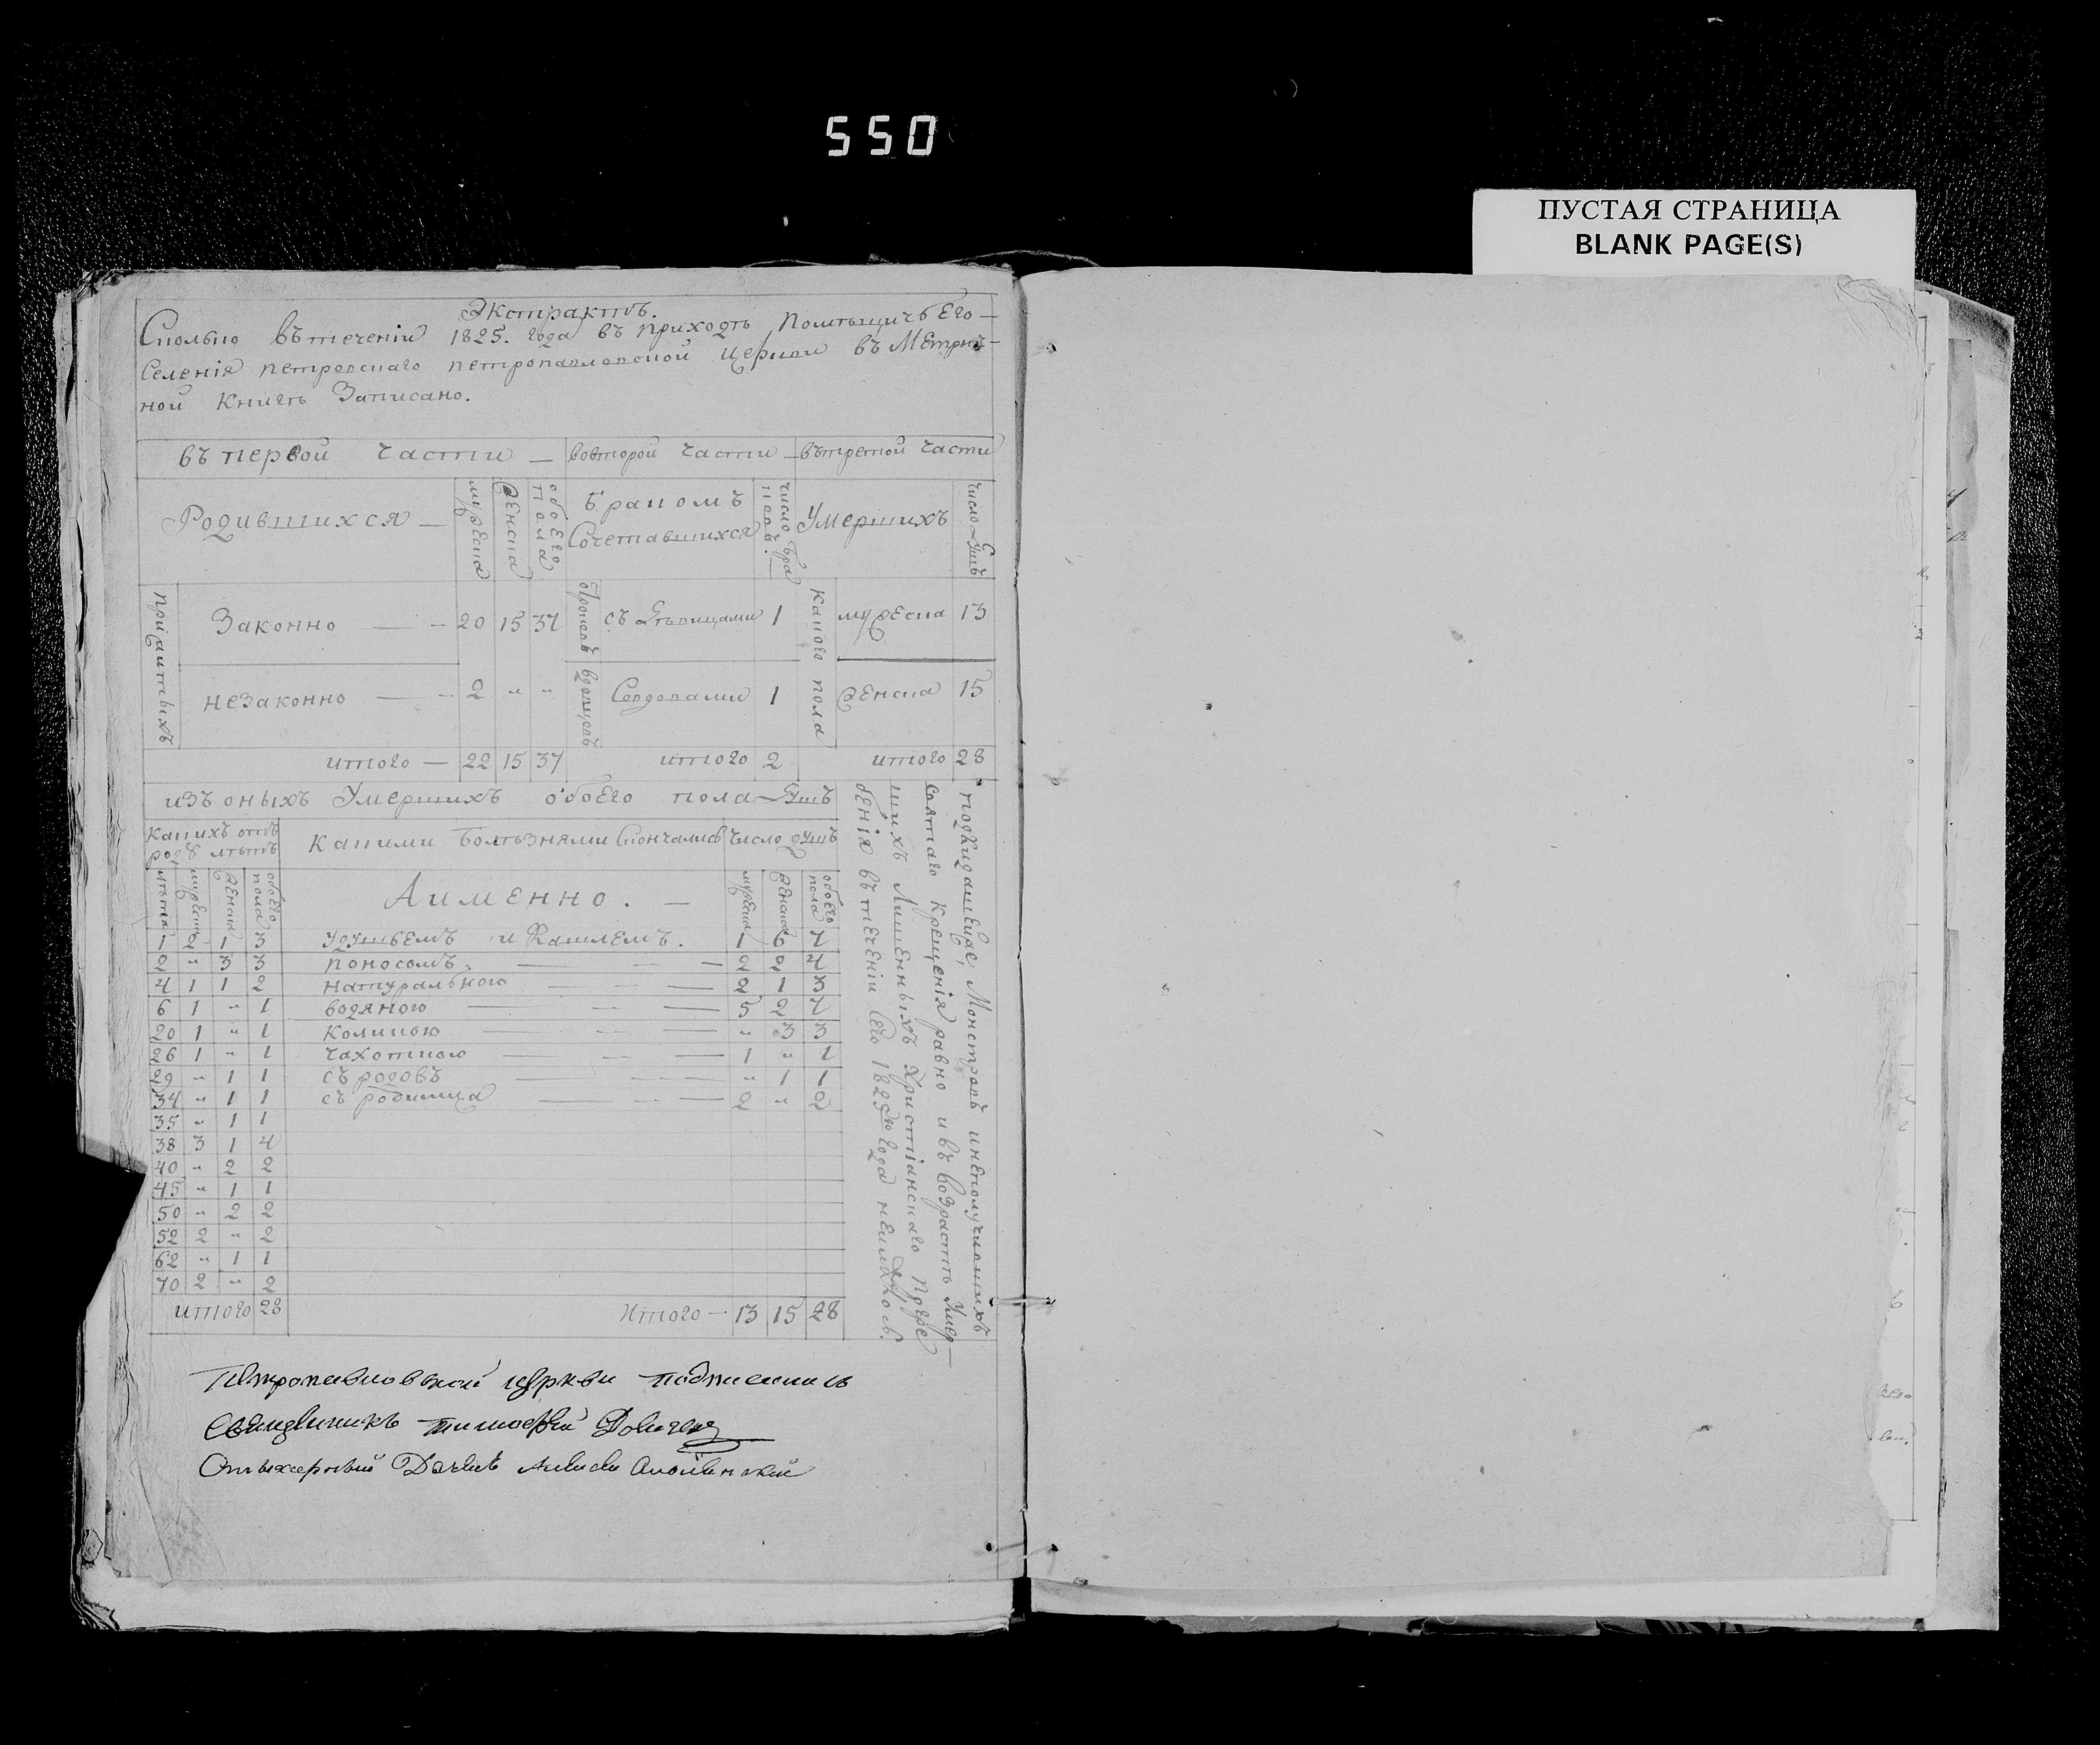 550
ПУСТАЯ СТРАНИЦА
BLANK PAGE(S)
Экстрактъ.
Сколько въ теченіи 1825. года въ приходѣ Помѣщичьего—
Селенія петровскаго петропавловской церкви въ Метрич-
ной Книгѣ Записано.
въ первой части — во второй части — въ третой части
Родившихся — мужеска женска обоего пола Бракомъ Сочетавшихся число бра ковъ. Умершихъ число душъ
прижитыхъ Законно — 20 15 37 съ Дѣвицами 1 какого пола мужеска 13
незаконно — 2 „ „ вдовцовъ Совдовами 1 женска 15
итого — 22 15 37 итого 2 итого 28
изъ оныхъ Умершихъ обоего пола Душъ
Какихъ отъ роду лѣтъ какими болѣзнями Скончались Число душъ
лѣта мужеска женска обоего пола Аименно. — мужеска женска обоего пола
1 2 1 3 удушьемъ и Кашлемъ. 1 6 7
2 „ 3 3 поносомъ — 2 2 4
4 1 1 2 натурального — 2 1 3
6 1 „ 1 водяною — 5 2 7
20 1 „ 1 коликою — „ 3 3
26 1 „ 1 чахоткою — 1 „ 1
29 „ 1 1 съ родовъ — „ 1 1
34 „ 1 1 съ родимца — 2 „ 2
35 „ 1 1
38 3 1 4
40 „ 2 2
45 „ 1 1
50 „ 2 2
52 2 „ 2
62 „ 1 1
70 2 „ 2
итого 28 Итого — 13 15 28
подкидышей, Монстровъ инеполучившихъ
Святаго Крещенія равно и въ возрастѣ Умер—
шихъ Лишенныхъ Христіанскаго Погре
бенія въ теченіи сего 1825го года неимѣлось.
Петропавловской церкви подписались
Священникъ тимофѣй
Дячекъ